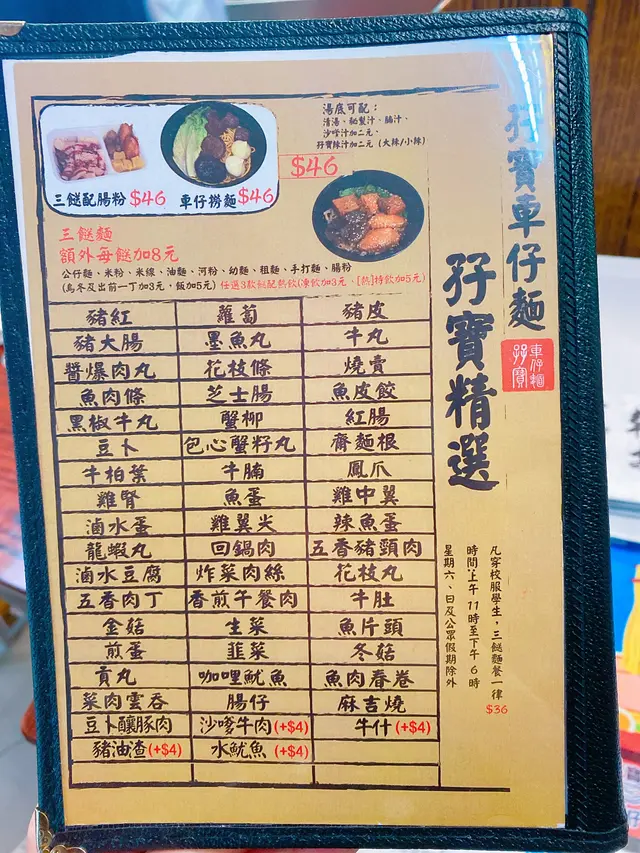 孖寶車仔麵
車仔麵
孖寶
孖寶精選
湯底可配：
清湯、秘製汁、腩汁、
沙嗲汁加二元、
孖寶辣汁加二元（大辣/小辣）
三餸配腸粉 $46
車仔撈麵 $46
$46
三餸麵
額外每餸加8元
公仔麵、米粉、米線、油麵、河粉、幼麵、粗麵、手打麵、腸粉
(烏冬及出前一丁加3元，飯加5元) 任選3款餸配熱飲(凍飲加3元、[熱]特飲加5元)
豬紅 蘿蔔 豬皮
豬大腸 墨魚丸 牛丸
醬爆肉丸 花枝條 燒賣
魚肉條 芝士腸 魚皮餃
黑椒牛丸 蟹柳 紅腸
豆卜 包心蟹籽丸 齋麵根
牛柏葉 牛腩 鳳爪
雞腎 魚蛋 雞中翼
滷水蛋 雞翼尖 辣魚蛋
龍蝦丸 回鍋肉 五香豬頸肉
滷水豆腐 炸菜肉絲 花枝丸
五香肉丁 香煎午餐肉 牛肚
金菇 生菜 魚片頭
煎蛋 韭菜 冬菇
貢丸 咖哩魷魚 魚肉春卷
菜肉雲吞 腸仔 麻吉燒
豆卜釀豚肉 沙嗲牛肉(+$4) 牛什(+$4)
豬油渣(+$4) 水魷魚(+$4)
凡穿校服學生，三餸麵餐一律$36
時間：上午11時至下午6時
星期六、日及公眾假期除外